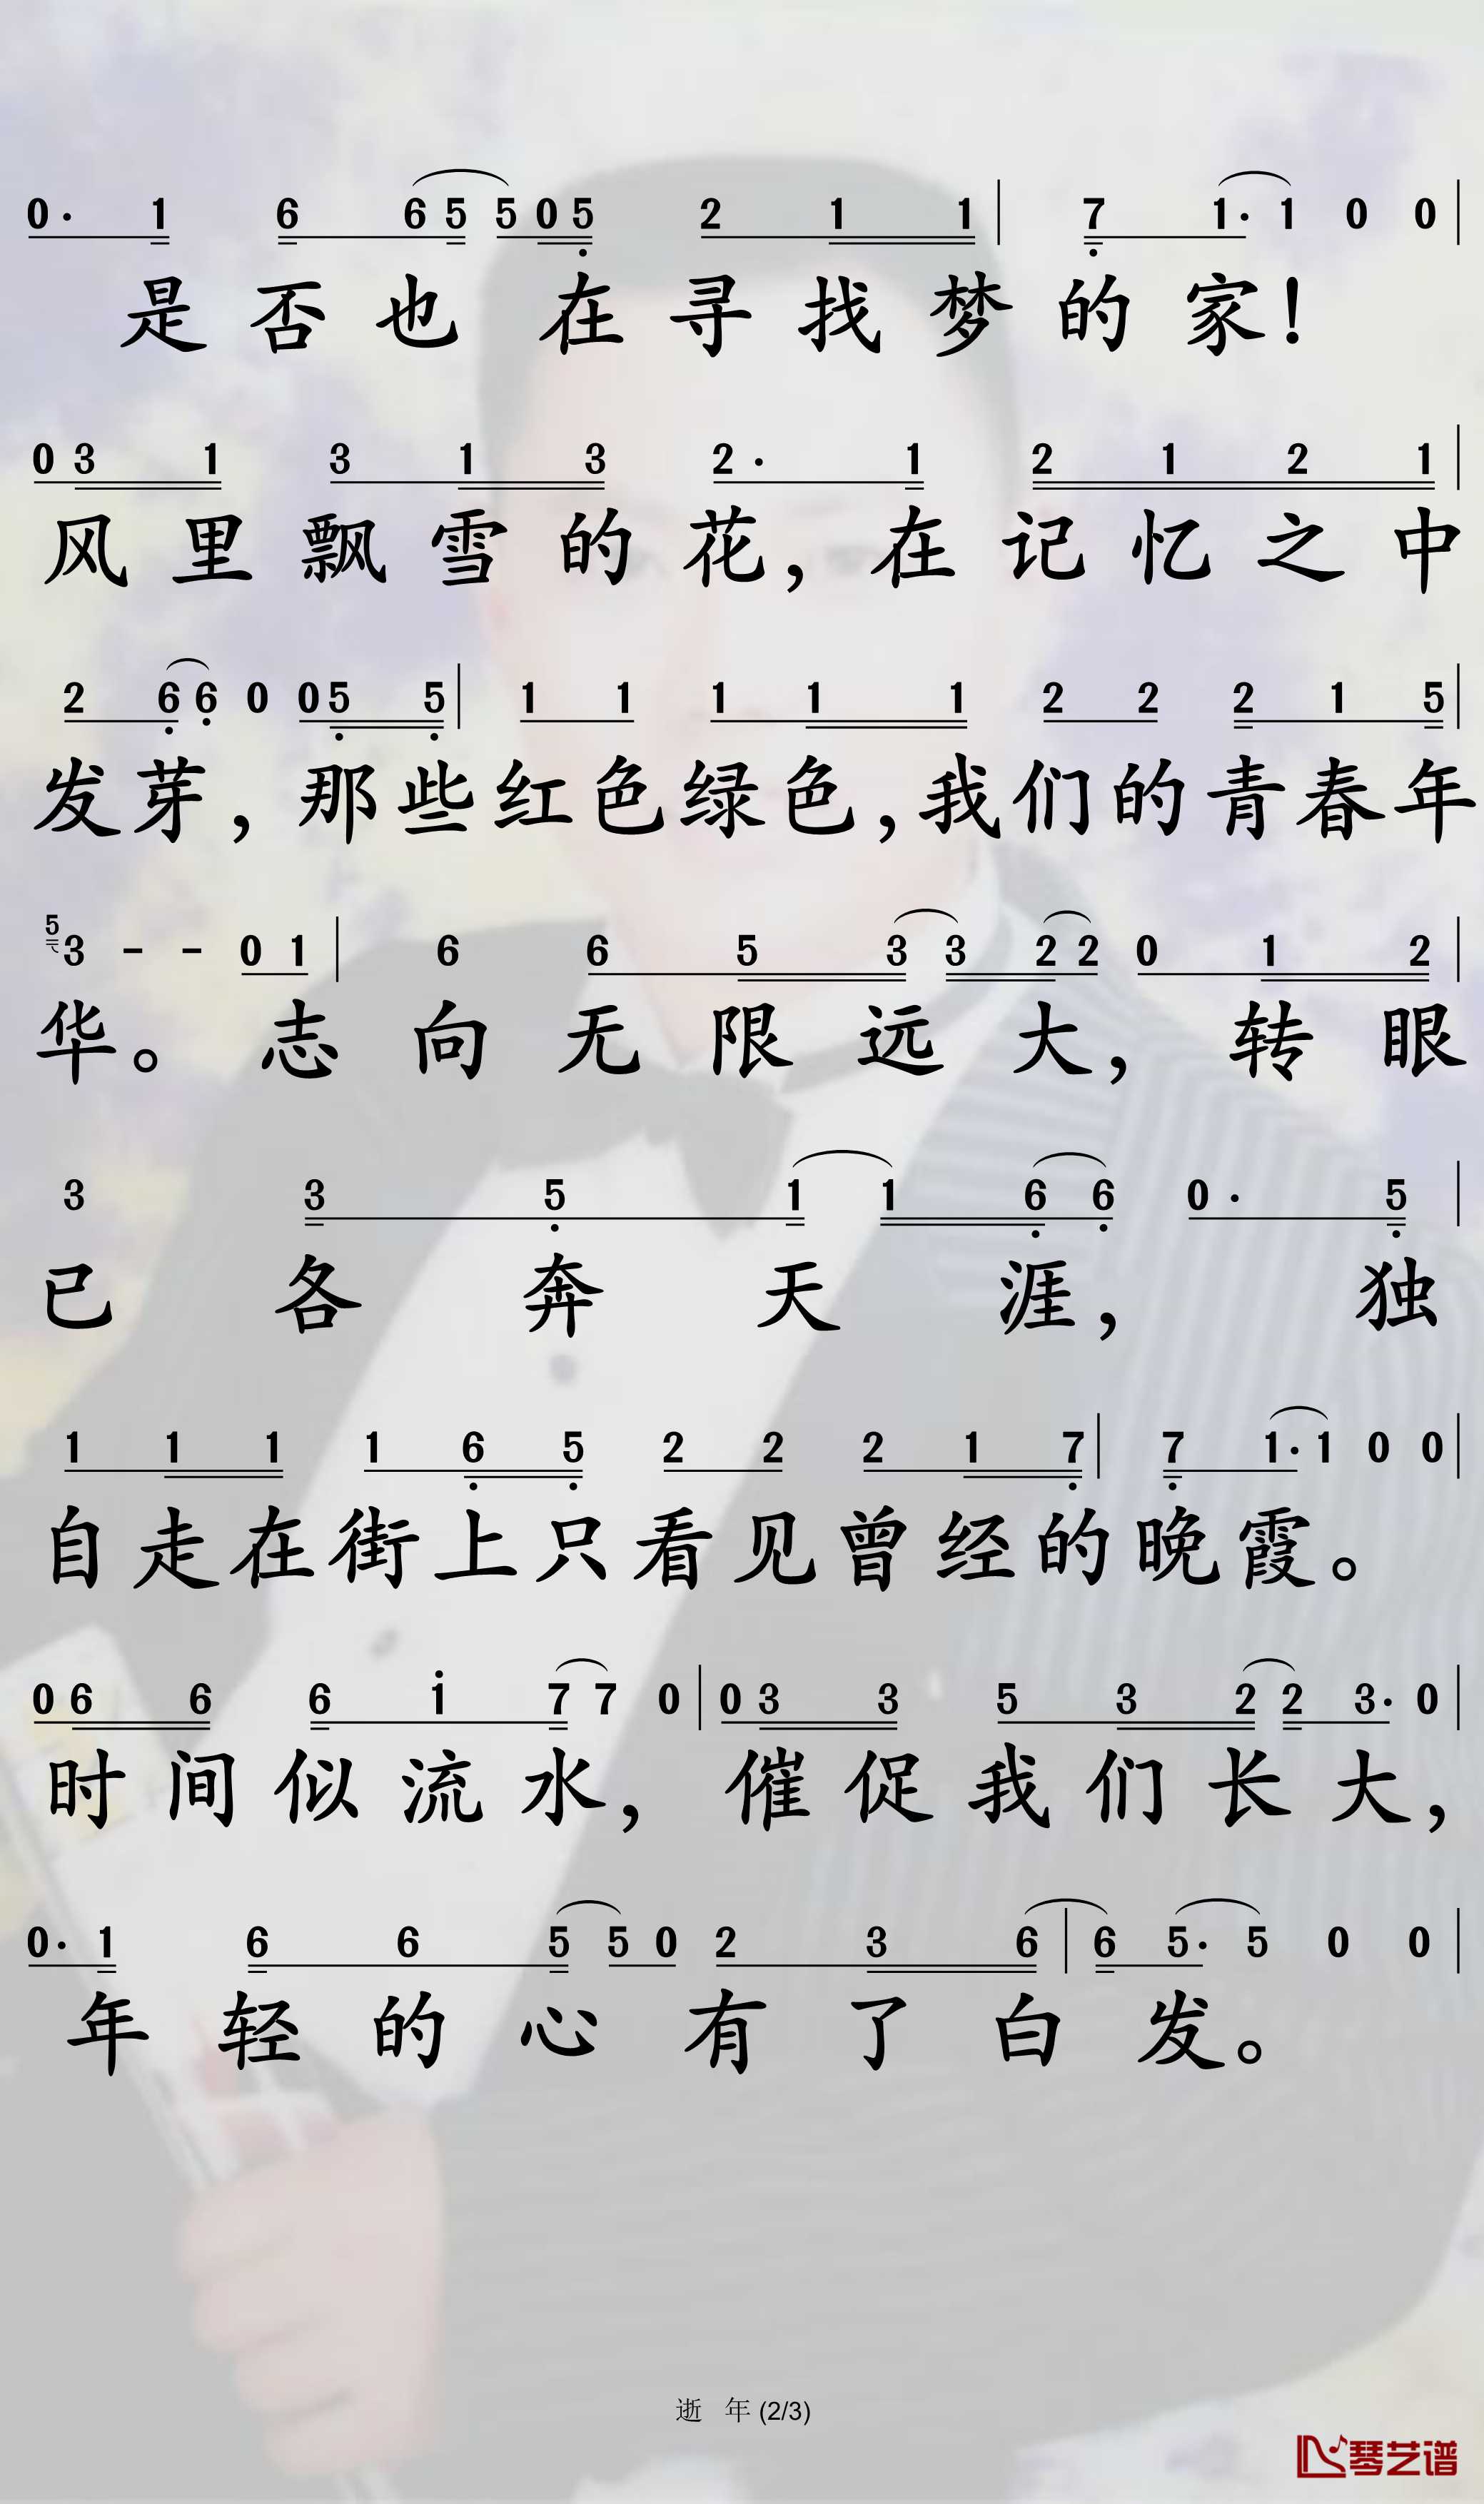 0· 1 6 6 5 5 0 5 2 1 1 | 7 1· 1 0 0 |
是否也在寻找梦的家!
0 3 1 3 1 3 2· 1 2 1 2 1 |
风里飘雪的花,在记忆之中
2 6 6 0 0 5 5 | 1 1 1 1 1 2 2 2 1 5 |
发芽,那些红色绿色,我们的青春年
5 3 - - 0 1 | 6 6 5 3 3 2 2 0 1 2 |
华。志向无限远大,转眼
3 3 5 1 1 6 6 0· 5 |
已各奔天涯,独
1 1 1 1 6 5 2 2 2 1 7 | 7 1· 1 0 0 |
自走在街上只看见曾经的晚霞。
0 6 6 6 1 7 7 0 | 0 3 3 5 3 2 2 3· 0 |
时间似流水,催促我们长大,
0· 1 6 6 5 5 0 2 3 6 | 6 5· 5 0 0 |
年轻的心有了白发。
逝 年 (2/3)
琴艺谱